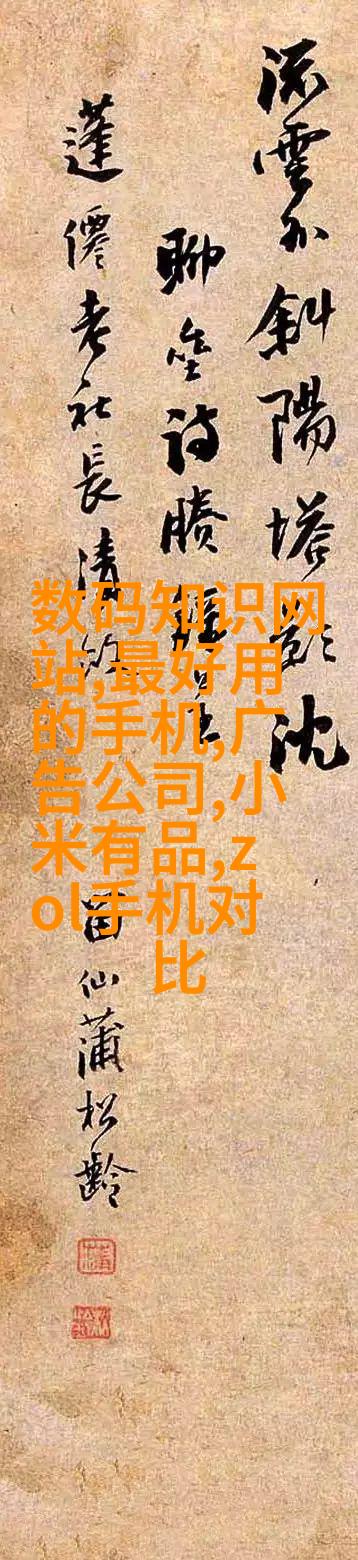 流雲外斜陽塔影沈
聊诗賸
蓬僊老社長清
留仙蒲松齡
数码知识网
站,最好用
的手机,广
告公司,小
米有品,z
ol手机对
比